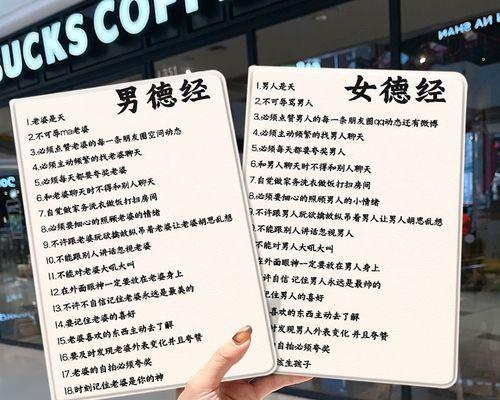 UCKS COFF
男德经
1.老婆是天
2.不可辱ma老婆
3.必须点赞老婆的每一条朋友圈空间动态
4.必须主动频繁的找老婆聊天
5.必须每天都要夸奖老婆
6.和老婆聊天时不得和别人聊天
7.自觉做家务洗衣做饭打扫房间
8.必须要细心的照顾老婆的情绪
9.不许跟老婆玩欲擒故纵吊着老婆让老婆胡思乱想
10.不能跟别人讲话忽视老婆
11.不能对老婆大吼大叫
12.在外面眼神一定要放在老婆身上
13.不许不自信记住老婆永远是最美的
14.要记住老婆的喜好
15.老婆喜欢的东西主动去了解
16.要及时发现老婆外表变化并且夸赞
17.老婆的自拍必须夸奖
18.时刻记住老婆是你的神
女德经
1.男人是天
2.不可辱骂男人
3.必须点赞男人的每一条朋友圈qq动态还有微博
4.必须主动频繁的找男人聊天
5.必须每天都要夸奖男人
6.和男人聊天时不得和别人聊天
7.自觉做家务洗衣做饭打扫房间
8.必须要细心的照顾男人的小情绪
9.不许跟男人玩欲擒故纵吊着男人让男人胡思乱想
不能跟别人讲话忽视男人
不能对男人大吼大叫
在外面眼神一定要放在男人身上
不许不自信记住男人永远是最帅的
记住男人的喜好
喜欢的东西主动去了解
时发现男人外表变化并且夸赞
的自拍必须夸奖
生孩子